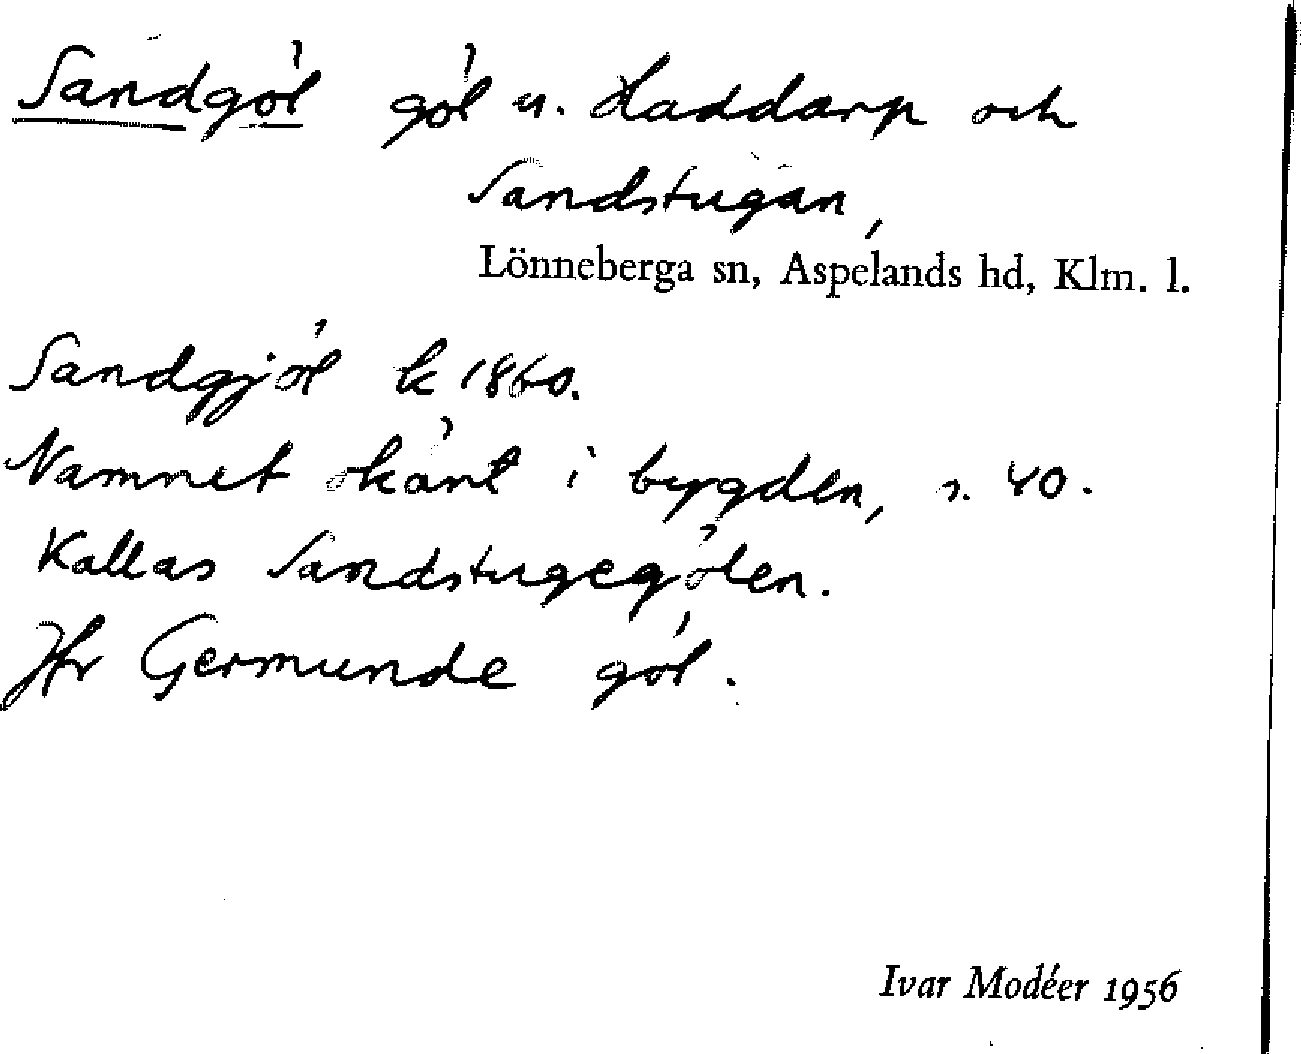 Sandgöl göl u. Haddarp och
Sandstugan,
Lönneberga sn, Aspelands hd, Klm. l.
Sandgjöl k 1860.
Namnet okänt i bygden, s. 40.
Kallas Sandstugegölen.
Jfr Germunde göl.
Ivar Modéer 1956